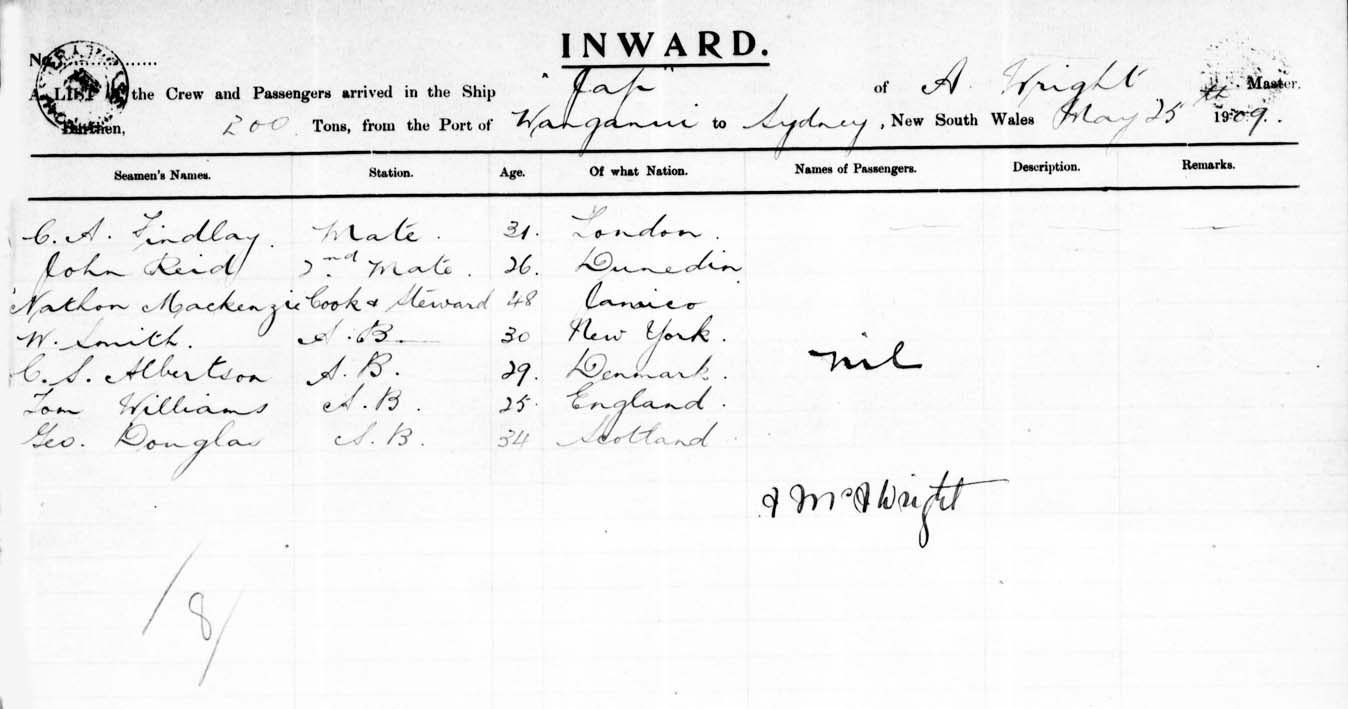 INWARD.
No.
A LIST of the Crew and Passengers arrived in the Ship "Jap" of A. Wright Master.
Burthen, 200 Tons, from the Port of Wanganui to Sydney, New South Wales May 25th 1909.
Seamen's Names. Station. Age. Of what Nation. Names of Passengers. Description. Remarks.
C. A. Findlay. Mate. 31. London.
John Reid 2nd Mate. 26. Dunedin
Nathon Mackenzie Cook & Steward 48 Jamico
W. Smith. A.B. 30 New York.
C. S. Albertson A.B. 29. Denmark.
nil
Tom Williams A.B. 25. England.
Geo. Douglas A.B. 34 Scotland
Wright
8